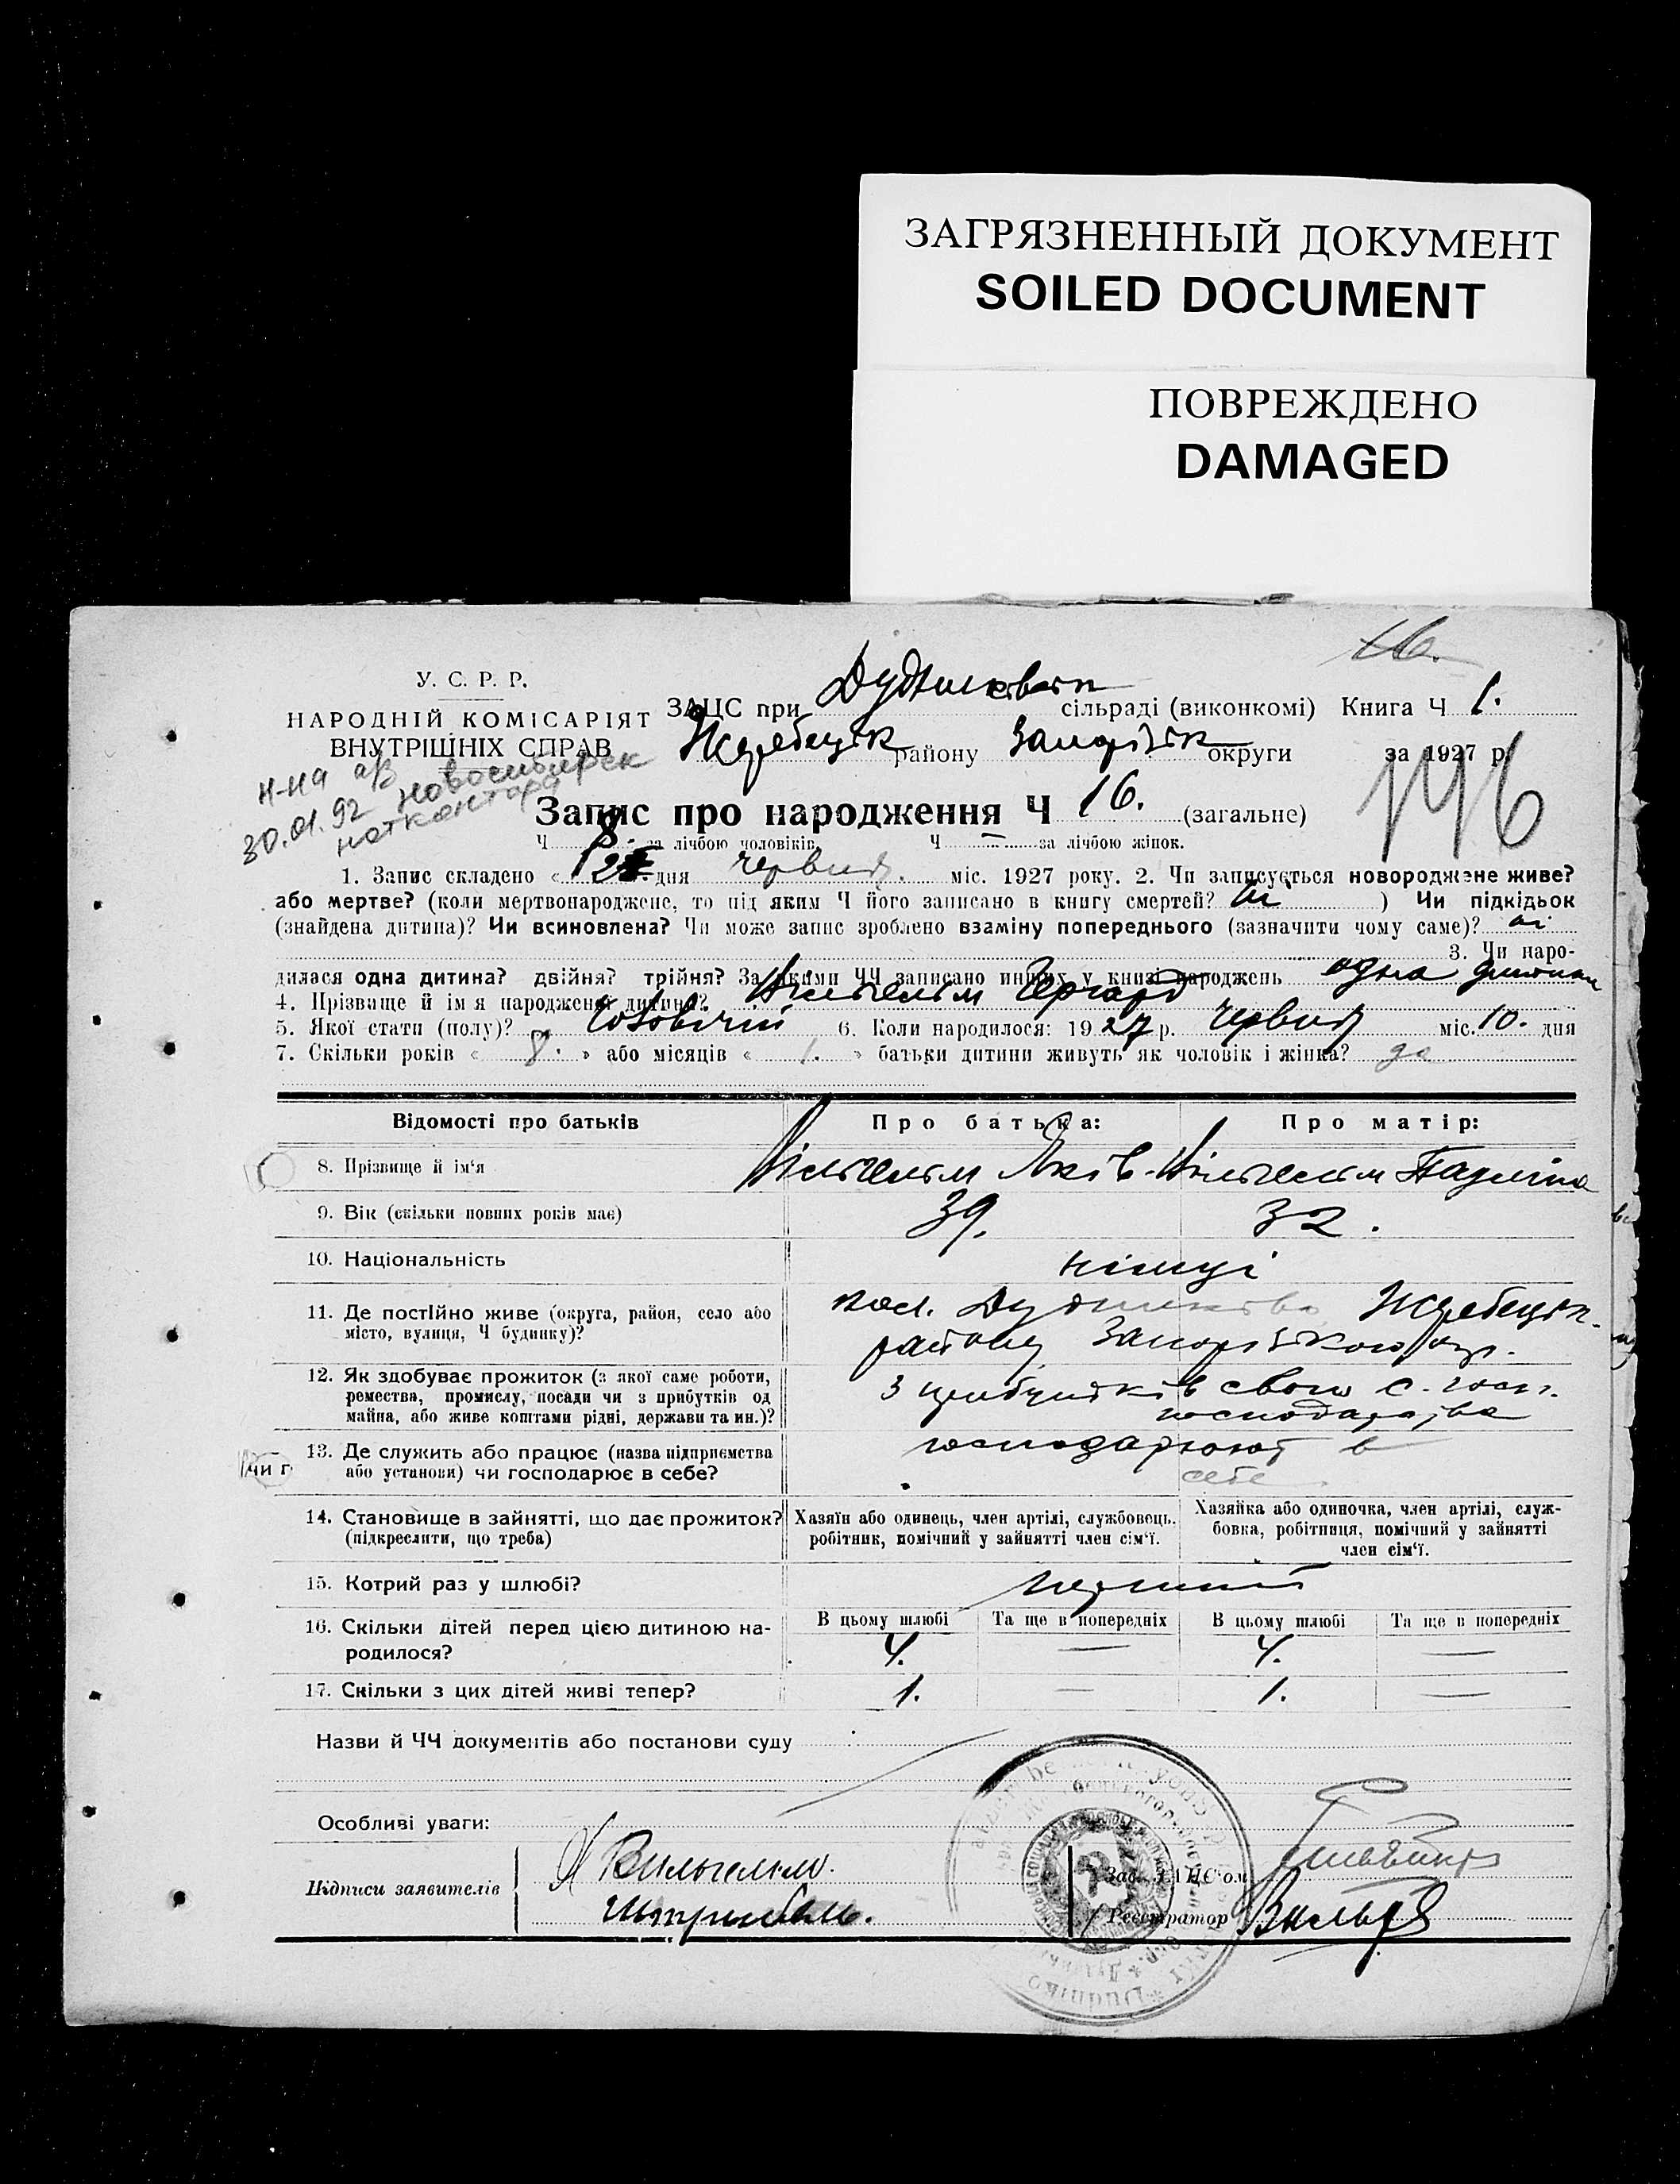 ЗАГРЯЗНЕННЫЙ ДОКУМЕНТ
SOILED DOCUMENT
ПОВРЕЖДЕНО
DAMAGED
16.
У. С. Р. Р.
НАРОДНІЙ КОМІСАРІЯТ
ВНУТРІШНІХ СПРАВ
ЗАЦС при сільраді (виконкомі) Книга Ч 1.
Жеребецьк району Запорізьк округи за 1927 р.
Н-на
30.01.92 Новосибирск
нотконтора
146
Запис про народження Ч 16. (загальне)
Ч 8. за лічбою чоловіків Ч — за лічбою жінок.
1. Запис складено « дня червня. міс. 1927 року. 2. Чи записується новороджене живе?
або мертве? (коли мертвонароджене, то під яким Ч його записано в книгу смертей? ні ) Чи підкідьок
(знайдена дитина)? Чи всиновлена? Чи може запис зроблено взаміну попереднього (зазначити чому саме)? ні
3. Чи наро-
дилася одна дитина? двійня? трійня? За якими ЧЧ записано инших у книзі народжень одна дитина
4. Прізвище й ім'я народженої дитини? Вільгельм Гергард
5. Якої стати (полу)? Чоловічий 6. Коли народилося: 1927 р. червня міс. 10. дня
7. Скільки років « 8. » або місяців « 1. » батьки дитини живуть як чоловік і жінка? да
Відомості про батьків Про батька: Про матір:
8. Прізвище й ім'я Вільгельм Яків. Вільгельм Пауліна
9. Вік (скільки повних років має) 39. 32.
10. Національність німці
11. Де постійно живе (округа, район, село або кол. Жеребецьк.
місто, вулиця, Ч будинку)? району Запорізької окр.
12. Як здобуває прожиток (з якої саме роботи, з прибутків свого с. госп.
ремества, промислу, посади чи з прибутків од господарства
майна, або живе коштами рідні, держави та ин.)?
чи г.
13. Де служить або працює (назва підприємства господарюют в
або установи) чи господарює в себе? себе
14. Становище в зайнятті, що дає прожиток? Хазяїн або одинець, член артілі, службовець, Хазяйка або одиночка, член артілі, служ-
(підкреслити, що треба) робітник, помічний у зайнятті член сім'ї. бовка, робітниця, помічний у зайнятті
член сім'ї.
15. Котрий раз у шлюбі? перший
В цьому шлюбі Та ще в попередніх В цьому шлюбі Та ще в попередніх
16. Скільки дітей перед цією дитиною на-
родилося? 4. — 4. —
17. Скільки з цих дітей живі тепер? 1. — 1. —
Назви й ЧЧ документів або постанови суду
Особливі уваги:
Підписи заявителів Я Вильгельм.
Зав. ЗАЦС'ом
Реєстратор